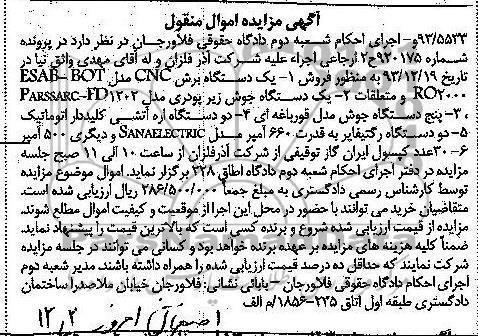 آگهی مزایده اموال منقول
۹۳/۵۵۳۳و- اجرای احکام شعبه دوم دادگاه حقوقی فلاورجان در نظر دارد در پرونده
شماره ۹۲۰۱۷۵ح۲ ارجاعی اجراء علیه شرکت آذر فلزان و له آقای مهدی واثق نیا در
تاریخ ۹۳/۱۲/۱۹ به منظور فروش ۱- یک دستگاه برش CNC مدل ESAB-BOT
RO۲۰۰۰ و متعلقات ۲- یک دستگاه جوش زیر پودری مدل PARSSARC-FD۱۳۰۲
، ۳- پنج دستگاه جوش مدل قورباغه ای ۴- دو دستگاه اره آتشی کلیددار اتوماتیک
۵- دو دستگاه رکتیفایر به قدرت ۶۶۰ آمپر مدل SANAELECTRIC و دیگری ۵۰۰ آمپر
۶- ۳۰عدد کپسول ایران گاز توقیفی از شرکت آذرفلزان از ساعت ۱۰ الی ۱۱ صبح جلسه
مزایده در دفتر اجرای احکام شعبه دوم دادگاه اطاق ۳۲۸ برگزار نماید. اموال موضوع مزایده
توسط کارشناس رسمی دادگستری به مبلغ جمعاً ۲۸۶/۵۰۰/۰۰۰ ریال ارزیابی شده است.
متقاضیان خرید می توانند با حضور در محل این اجرا از موقعیت و کیفیت اموال مطلع شوند.
مزایده از قیمت ارزیابی شده شروع و برنده کسی است که بالاترین قیمت را پیشنهاد نماید.
ضمناً کلیه هزینه های مزایده بر عهده برنده خواهد بود و کسانی می توانند در جلسه مزایده
شرکت نمایند که حداقل ده درصد قیمت ارزیابی شده را همراه داشته باشند. مدیر شعبه دوم
اجرای احکام دادگاه حقوقی فلاورجان - بابائی. نشانی: فلاورجان خیابان ملاصدرا ساختمان
دادگستری طبقه اول اتاق ۲۳۵-۱۸۵۶/م الف
اصفهان امروز ۱۲,۲